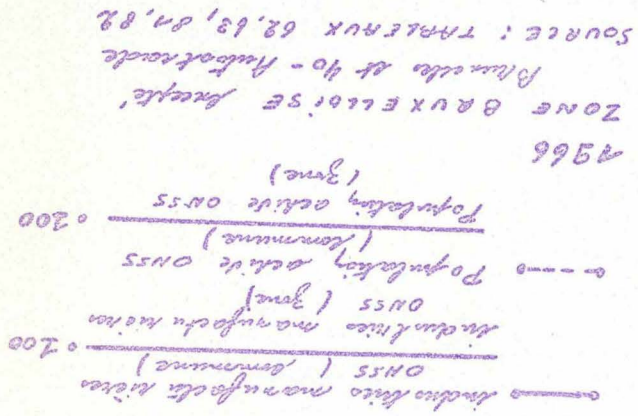 Industries manufacturières
ONSS (commune)
• 100
Industries manufacturières
ONSS (zone)
Population active ONSS
(commune)
• 100
Population active ONSS
(zone)
1966
ZONE BRUXELLOISE excepté
Bruxelles et 40 - Autostrade
SOURCE : TABLEAUX 62, 63, 81, 82